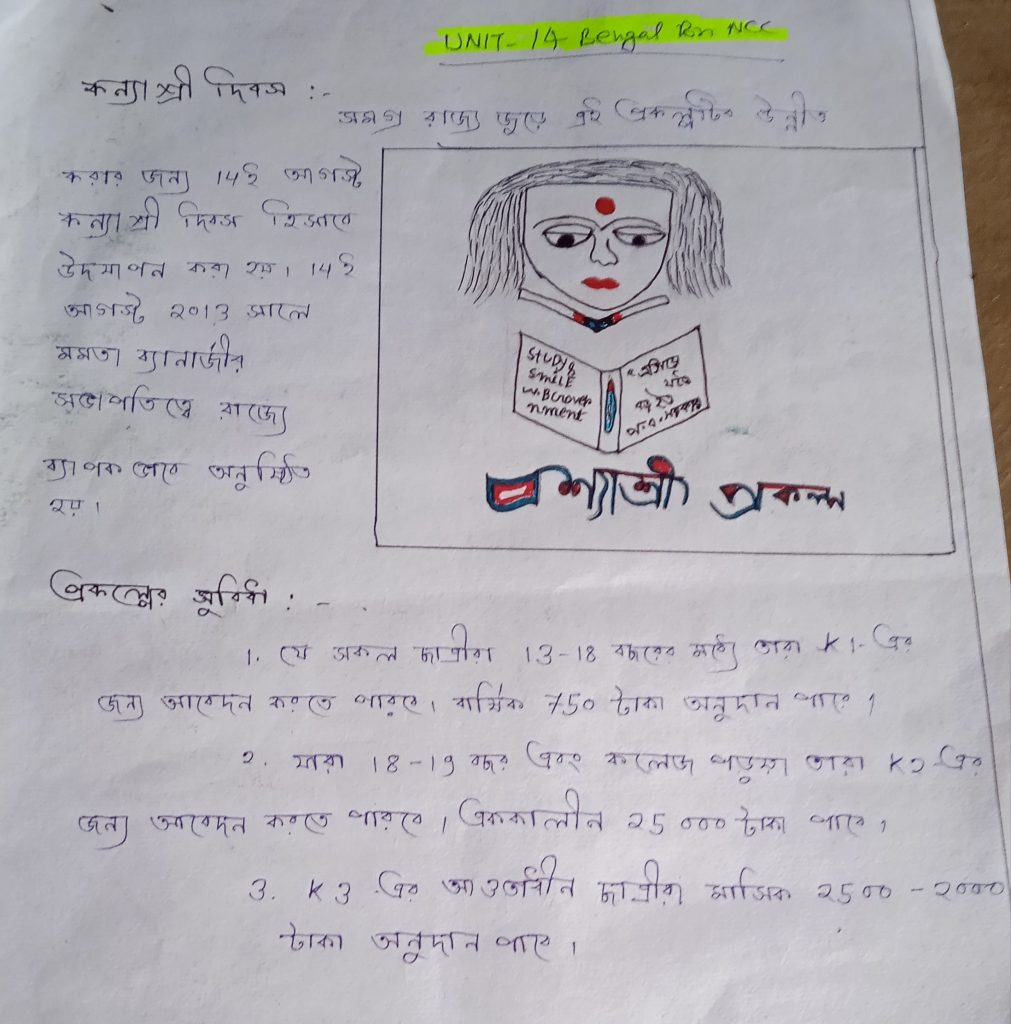 UNIT-14 Bengal Bn NCC
কন্যাশ্রী দিবস :-
সমগ্র রাজ্য জুড়ে এই প্রকল্পটির উন্নীত
করার জন্য 14ই আগস্ট
কন্যাশ্রী দিবস হিসাবে
উদযাপন করা হয়। 14ই
আগস্ট ২০13 সালে
মমতা ব্যানার্জীর
সভাপতিত্বে রাজ্যে
ব্যাপক ভাবে অনুষ্ঠিত
হয়।
STUDY &
SMILE
WB Gover
nment
এগিয়ে
প.ব. সরকার
কন্যাশ্রী প্রকল্প
প্রকল্পের সুবিধা :-
1. যে সকল ছাত্রীরা 13-18 বছরের মধ্যে তারা K1-এর
জন্য আবেদন করতে পারবে। বার্ষিক 750 টাকা অনুদান পাবে।
২. যারা 18-19 বছর এবং কলেজ পড়ুয়া তারা K২-এর
জন্য আবেদন করতে পারবে। এককালীন ২5000 টাকা পাবে।
3. K3-এর আওতাধীন ছাত্রীরা মাসিক ২500-২000
টাকা অনুদান পাবে।